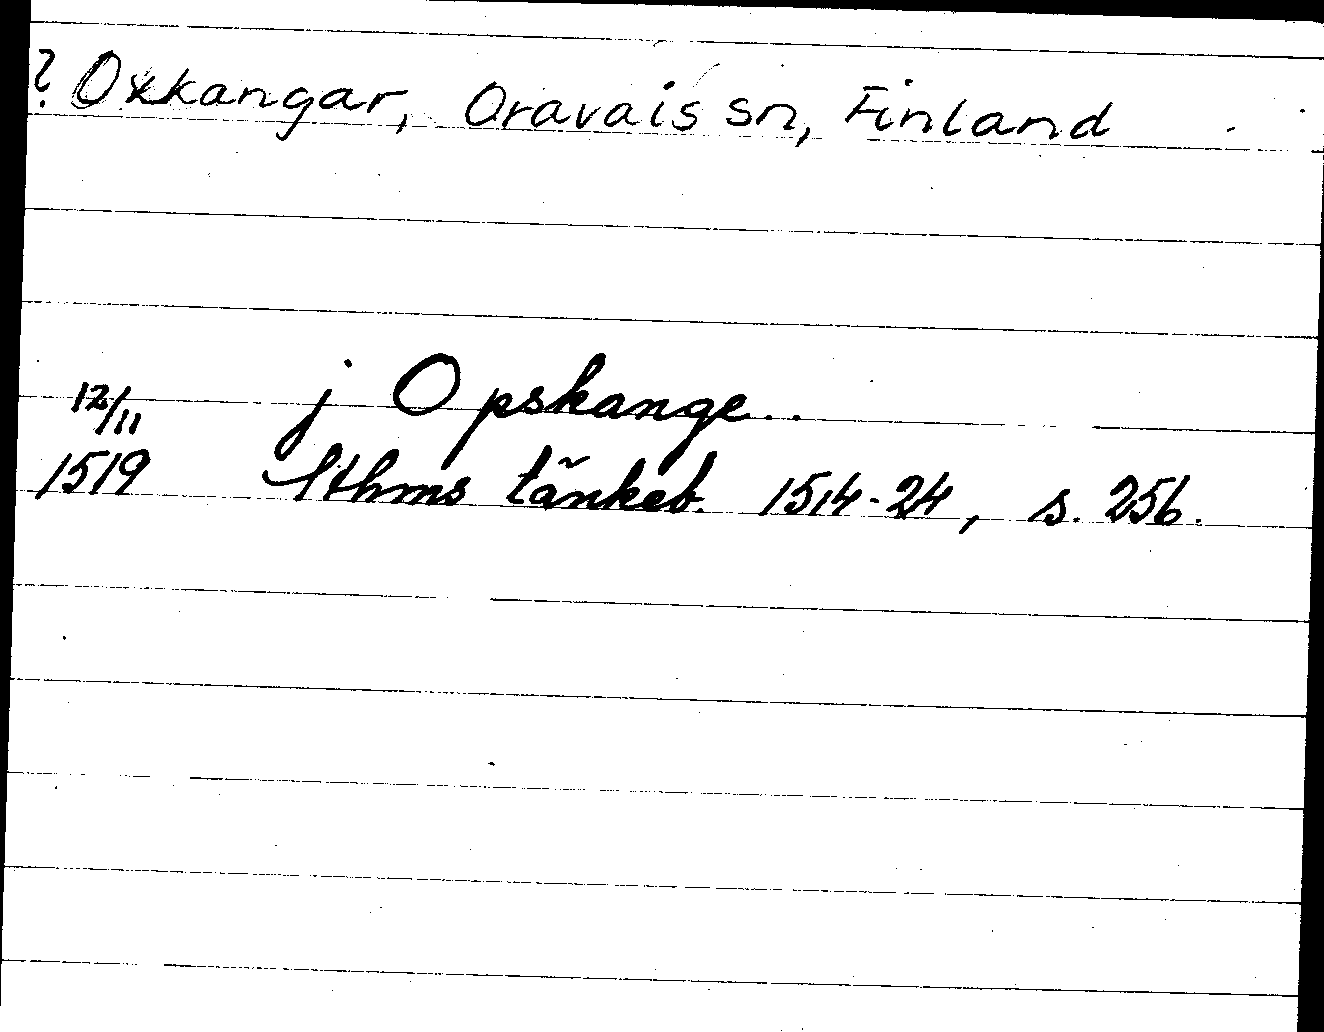 ? Oxkangar, Oravais sn, Finland
12/11 j Opskange..
1519 Sthms tänkeb. 1514-24, s. 256.